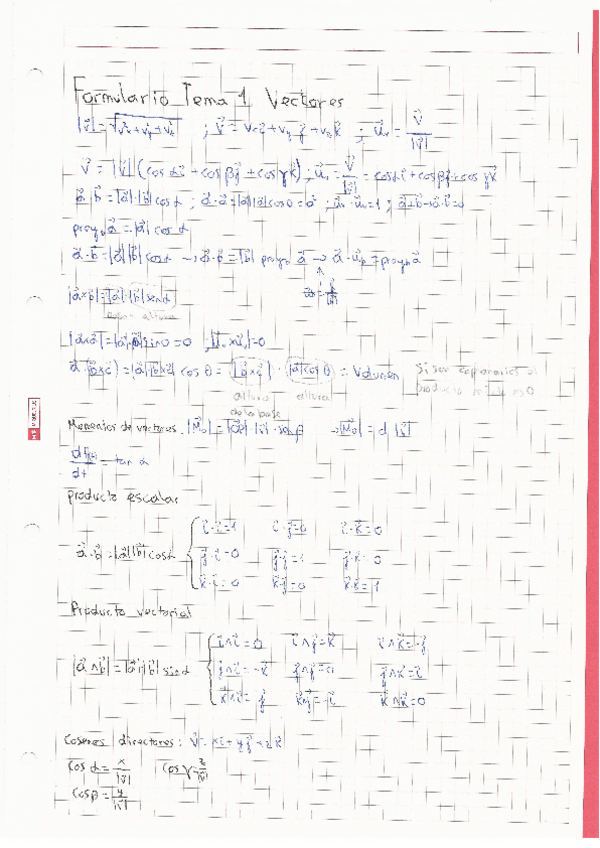 Formulario Tema 1 Vectores
|v⃗| = √(vx² + vy² + vz²) ; v⃗ = vx i⃗ + vy j⃗ + vz k⃗ ; u⃗v = v⃗/|v⃗|
v⃗ = |v⃗| (cos α i⃗ + cos β j⃗ + cos γ k⃗) ; u⃗v = v⃗/|v⃗| = cos α i⃗ + cos β j⃗ + cos γ k⃗
a⃗·b⃗ = |a⃗|·|b⃗| cos α ; a⃗·a⃗ = |a⃗||a⃗| cos 0 = a² ;
proy_b a⃗ = |a⃗| cos α
a⃗·b⃗ = |a⃗||b⃗| cos α → a⃗·b⃗ = |b⃗| proy_b a⃗ → a⃗·u⃗b = proy_b a⃗
|a⃗×b⃗| = |a⃗|·|b⃗| sin α
altura
|a⃗×a⃗| = |a⃗||a⃗| sin 0 = 0
a⃗·(b⃗×c⃗) = |a⃗||b⃗×c⃗| cos θ = |b⃗×c⃗| · |a⃗| cos θ = Volumen Si son coplanarios el
altura
Momentos de vectores. |M⃗o| = · |v⃗| · sin β → |M⃗o| = d |v⃗|
df(t)/dt = tan α
producto escalar
a⃗·b⃗ = |a⃗||b⃗| cos α
i⃗·i⃗ = 1 i⃗·j⃗ = 0 i⃗·k⃗ = 0
j⃗·i⃗ = 0 j⃗·j⃗ = 1 j⃗·k⃗ = 0
k⃗·i⃗ = 0 k⃗·j⃗ = 0 k⃗·k⃗ = 1
Producto vectorial
|a⃗∧b⃗| = |a⃗||b⃗| sin α
i⃗∧i⃗ = 0 i⃗∧j⃗ = k⃗ i⃗∧k⃗ = -j⃗
j⃗∧i⃗ = -k⃗ j⃗∧j⃗ = 0 j⃗∧k⃗ = i⃗
k⃗∧i⃗ = j⃗ k⃗∧j⃗ = -i⃗ k⃗∧k⃗ = 0
Cosenos directores: v⃗ = x i⃗ + y j⃗ + z k⃗
cos α = x/|v⃗| cos γ = z/|v⃗|
cos β = y/|v⃗|